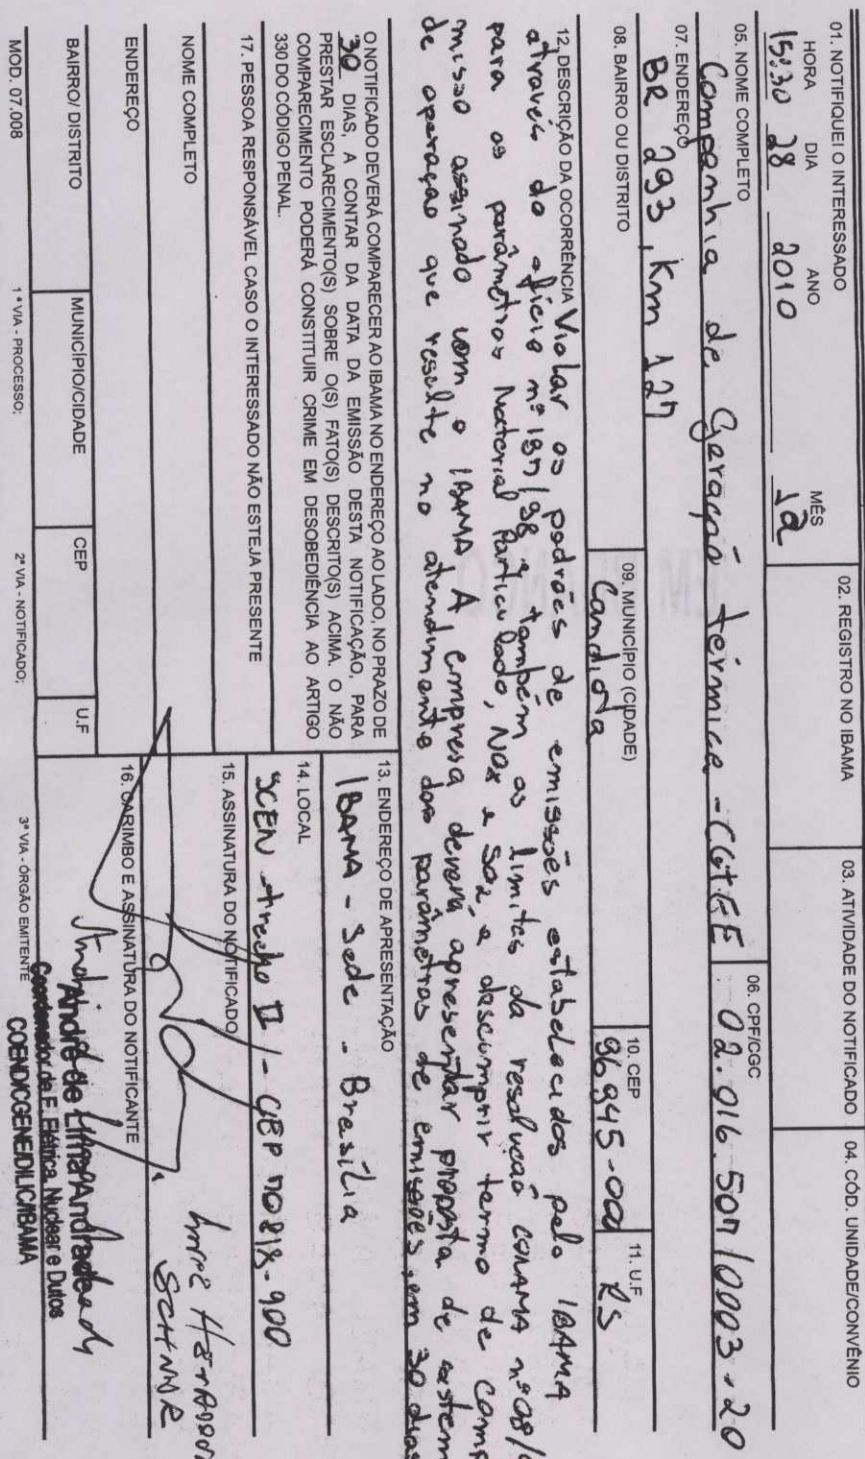 01. NOTIFIQUEI O INTERESSADO
HORA DIA ANO MÊS
15:30 28 2010 12
02. REGISTRO NO IBAMA
03. ATIVIDADE DO NOTIFICADO
04. CÓD. UNIDADE/CONVÊNIO
05. NOME COMPLETO
Companhia de Geração térmica - CGTEE
06. CPF/CGC
02.016.507/0003-20
07. ENDEREÇO
BR 293, Km 127
08. BAIRRO OU DISTRITO
09. MUNICÍPIO (CIDADE)
Candiota
10. CEP
96945-000
11. U.F
RS
12. DESCRIÇÃO DA OCORRÊNCIA Violar os padrões de emissões estabelecidos pelo IBAMA
através do ofício nº 187/98 e também os limites da resolução CONAMA nº 08/
para os parâmetros Material Particulado, NOx e SO2, e descumprir termo de comp
misso assinado com o IBAMA A empresa deverá apresentar proposta de sistem
de operação que resulte no atendimento dos parâmetros de emissões, em 30 dias
O NOTIFICADO DEVERÁ COMPARECER AO IBAMA NO ENDEREÇO AO LADO, NO PRAZO DE
30 DIAS, A CONTAR DA DATA DA EMISSÃO DESTA NOTIFICAÇÃO, PARA
PRESTAR ESCLARECIMENTO(S) SOBRE O(S) FATO(S) DESCRITO(S) ACIMA. O NÃO
COMPARECIMENTO PODERÁ CONSTITUIR CRIME EM DESOBEDIÊNCIA AO ARTIGO
330 DO CÓDIGO PENAL.
13. ENDEREÇO DE APRESENTAÇÃO
IBAMA - Sede - Brasília
14. LOCAL
SCEN trecho II - CEP 70818-900
17. PESSOA RESPONSÁVEL CASO O INTERESSADO NÃO ESTEJA PRESENTE
NOME COMPLETO
15. ASSINATURA DO NOTIFICADO
ENDEREÇO
16. CARIMBO E ASSINATURA DO NOTIFICANTE
André de Lima Andrade
Coordenador de E. Elétrica, Nuclear e Dutos
COEND/CGENE/DILIC/IBAMA
BAIRRO/ DISTRITO
MUNICÍPIO/CIDADE
CEP
U.F
MOD. 07.008
1ª VIA - PROCESSO;
2ª VIA - NOTIFICADO;
3ª VIA - ÓRGÃO EMITENTE